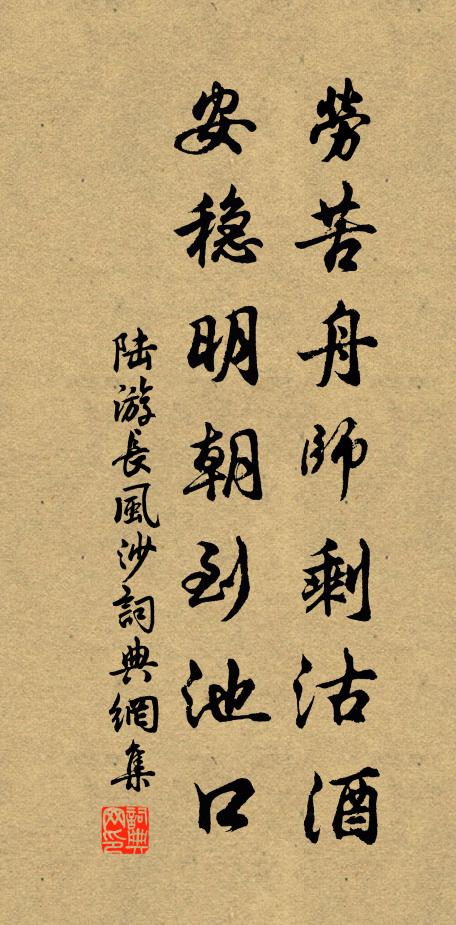 勞苦舟師剩沽酒
安穩明朝到池口
陸游長風沙詞典網集
詞典網印